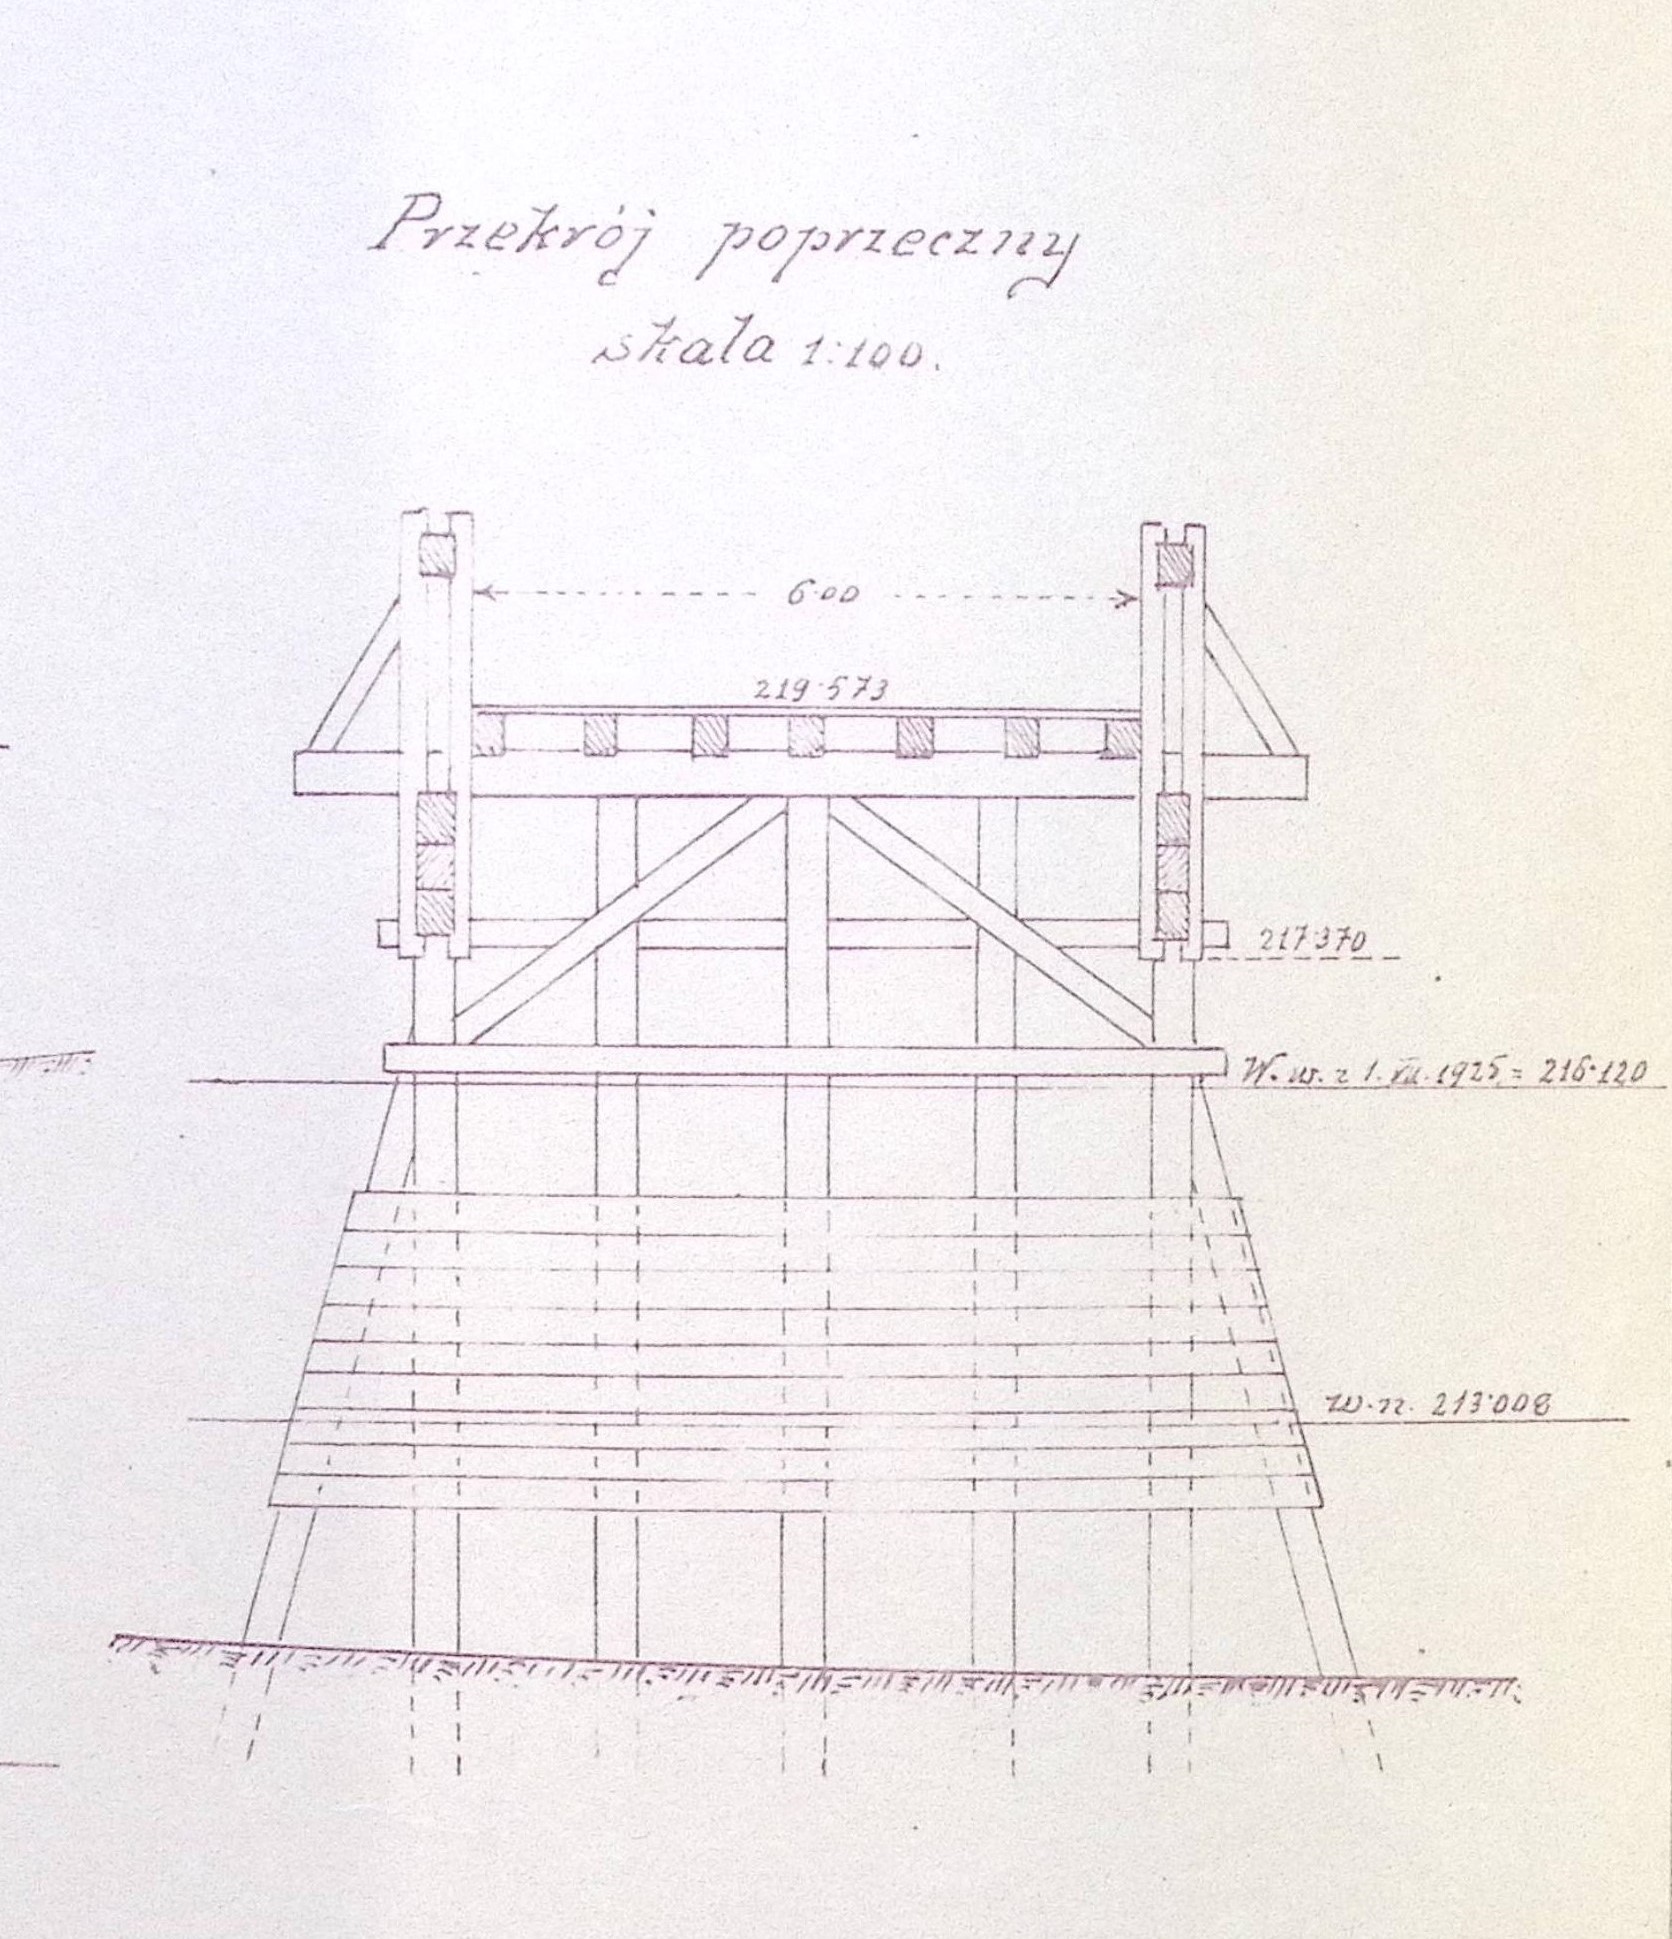 Przekrój poprzeczny
skala 1:100.
6·00
219·573
217·370
W. w. z 1. VII. 1925 = 216·120
w. n. 213·008